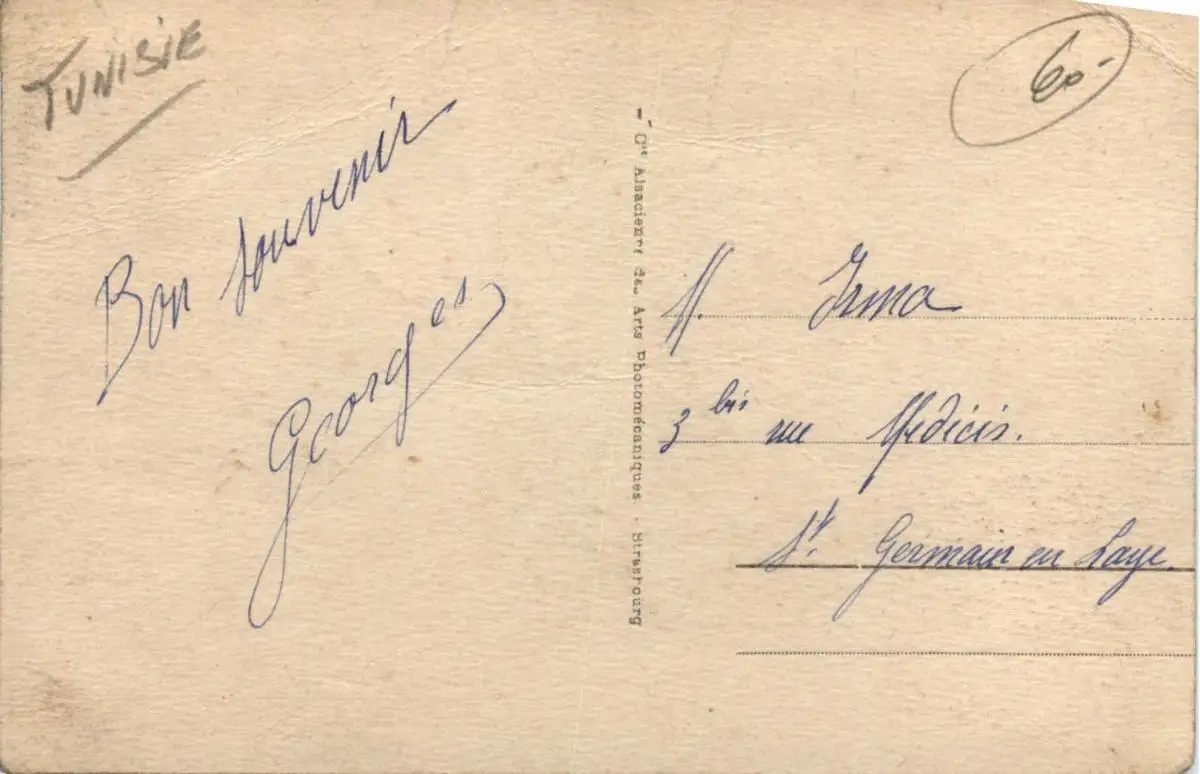 TUNISIE
60-
Bon souvenir
Georges
Cie Alsacienne des Arts Photomécaniques - Strasbourg
M. Irma
3 bis rue Medicis.
St. Germain en Laye.